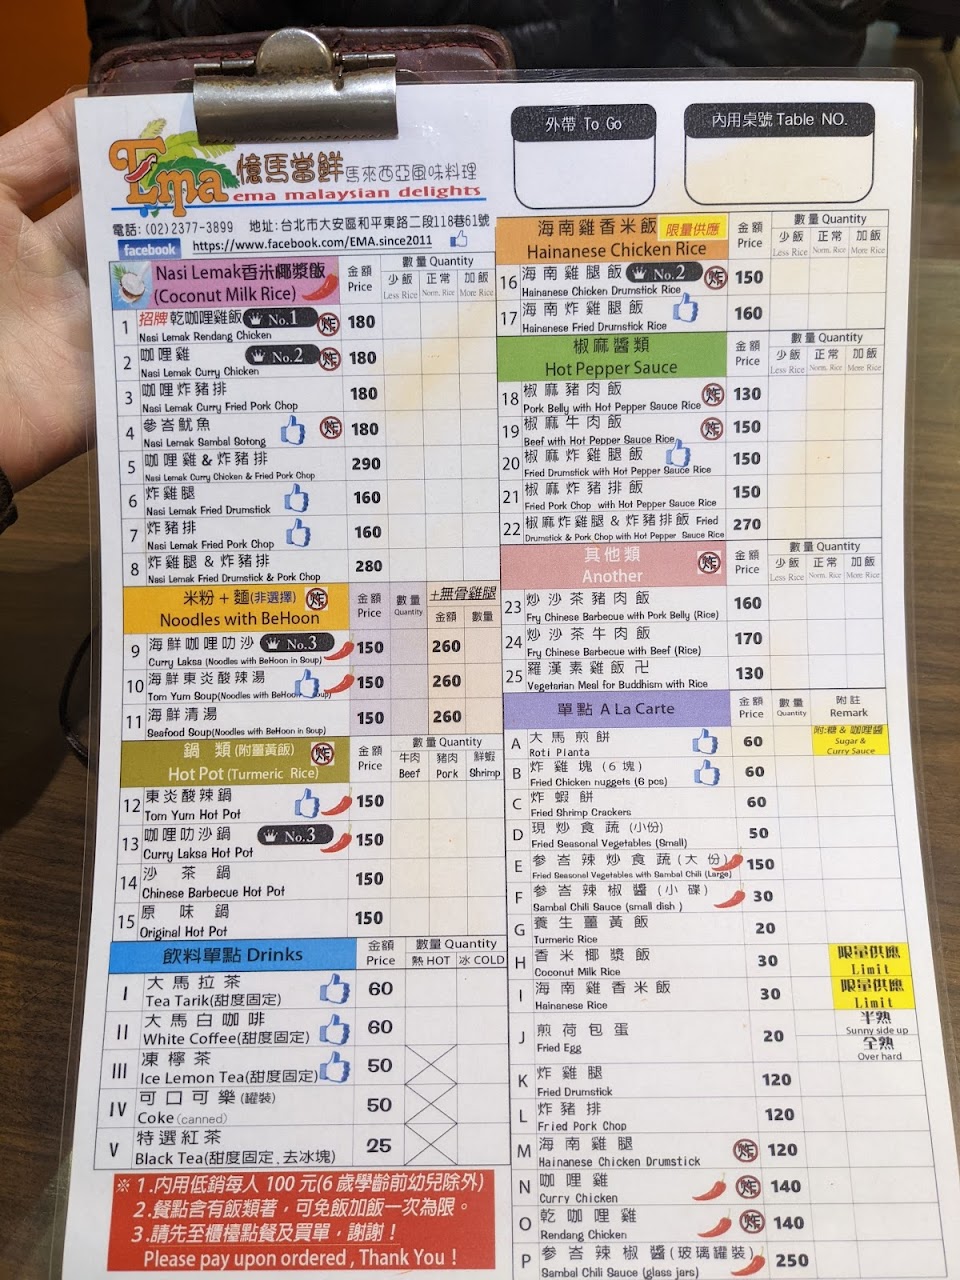 外帶 To Go
內用桌號 Table NO.
Ema 憶馬當鮮 馬來西亞風味料理
ema malaysian delights
電話: (02)2377-3899 地址:台北市大安區和平東路二段118巷61號
facebook https://www.facebook.com/EMA.since2011
Nasi Lemak香米椰漿飯
(Coconut Milk Rice)
金額 Price 數量 Quantity
少飯 Less Rice 正常 Norm. Rice 加飯 More Rice
1 招牌 乾咖哩雞飯 No.1 炸 180
Nasi Lemak Rendang Chicken
2 咖哩雞 No.2 炸 180
Nasi Lemak Curry Chicken
3 咖哩炸豬排 180
Nasi Lemak Curry Fried Pork Chop
4 參峇魷魚 炸 180
Nasi Lemak Sambal Sotong
5 咖哩雞&炸豬排 290
Nasi Lemak Curry Chicken & Fried Pork Chop
6 炸雞腿 160
Nasi Lemak Fried Drumstick
7 炸豬排 160
Nasi Lemak Fried Pork Chop
8 炸雞腿 & 炸豬排 280
Nasi Lemak Fried Drumstick & Pork Chop
米粉+麵(非選擇) 炸
Noodles with BeHoon
金額 Price 數量 Quantity +無骨雞腿
金額 數量
9 海鮮咖哩叻沙 No.3 150 260
Curry Laksa (Noodles with BeHoon in Soup)
10 海鮮東炎酸辣湯 150 260
Tom Yum Soup(Noodles with BeHoon Soup)
11 海鮮清湯 150 260
Seafood Soup(Noodles with BeHoon in Soup)
鍋 類(附薑黃飯) 炸
Hot Pot (Turmeric Rice)
金額 Price 數量 Quantity
牛肉 Beef 豬肉 Pork 鮮蝦 Shrimp
12 東炎酸辣鍋 150
Tom Yum Hot Pot
13 咖哩叻沙鍋 No.3 150
Curry Laksa Hot Pot
14 沙茶鍋 150
Chinese Barbecue Hot Pot
15 原味鍋 150
Original Hot Pot
飲料單點 Drinks
金額 Price 數量 Quantity
熱 HOT 冰 COLD
I 大馬拉茶 60
Tea Tarik(甜度固定)
II 大馬白咖啡 60
White Coffee(甜度固定)
III 凍檸茶 50
Ice Lemon Tea(甜度固定)
IV 可口可樂 (罐裝) 50
Coke (canned)
V 特選紅茶 25
Black Tea(甜度固定.去冰塊)
※ 1.內用低銷每人 100 元(6 歲學齡前幼兒除外)
2.餐點含有飯類著,可免飯加飯一次為限。
3.請先至櫃檯點餐及買單,謝謝!
Please pay upon ordered , Thank You !
海南雞香米飯 限量供應
Hainanese Chicken Rice
金額 Price 數量 Quantity
少飯 Less Rice 正常 Norm. Rice 加飯 More Rice
16 海南雞腿飯 No.2 炸 150
Hainanese Chicken Drumstick Rice
17 海南炸雞腿飯 160
Hainanese Fried Drumstick Rice
椒麻醬類
Hot Pepper Sauce
金額 Price 數量 Quantity
少飯 Less Rice 正常 Norm. Rice 加飯 More Rice
18 椒麻豬肉飯 炸 130
Pork Belly with Hot Pepper Sauce Rice
19 椒麻牛肉飯 炸 150
Beef with Hot Pepper Sauce Rice
20 椒麻炸雞腿飯 150
Fried Drumstick with Hot Pepper Sauce Rice
21 椒麻炸豬排飯 150
Fried Pork Chop with Hot Pepper Sauce Rice
22 椒麻炸雞腿 & 炸豬排飯 Fried 270
Drumstick & Pork Chop with Hot Pepper Sauce Rice
其他類 炸
Another
金額 Price 數量 Quantity
少飯 Less Rice 正常 Norm. Rice 加飯 More Rice
23 炒沙茶豬肉飯 160
Fry Chinese Barbecue with Pork Belly (Rice)
24 炒沙茶牛肉飯 170
Fry Chinese Barbecue with Beef (Rice)
25 羅漢素雞飯 卍 130
Vegetarian Meal for Buddhism with Rice
單點 A La Carte
金額 Price 數量 Quantity 附註 Remark
A 大馬煎餅 60 附:糖 & 咖哩醬
Roti Planta Sugar & Curry Sauce
B 炸雞塊(6塊) 60
Fried Chicken nuggets (6 pcs)
C 炸蝦餅 60
Fried Shrimp Crackers
D 現炒食蔬 (小份) 50
Fried Seasonal Vegetables (Small)
E 參峇辣炒食蔬(大份) 150
Fried Seasonal Vegetables with Sambal Chili (Large)
F 參峇辣椒醬(小碟) 30
Sambal Chili Sauce (small dish )
G 養生薑黃飯 20
Turmeric Rice
H 香米椰漿飯 30 限量供應
Coconut Milk Rice Limit
I 海南雞香米飯 30 限量供應
Hainanese Rice Limit
J 煎荷包蛋 20 半熟 Sunny side up
Fried Egg 全熟 Over hard
K 炸雞腿 120
Fried Drumstick
L 炸豬排 120
Fried Pork Chop
M 海南雞腿 炸 120
Hainanese Chicken Drumstick
N 咖哩雞 炸 140
Curry Chicken
O 乾咖哩雞 炸 140
Rendang Chicken
P 參峇辣椒醬(玻璃罐裝) 250
Sambal Chili Sauce (glass jars)